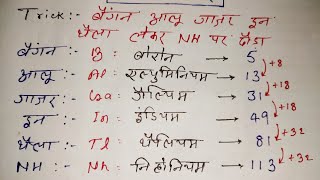 Trick:- बैगन आलू गाजर इन
थैला लेकर NH पर दौडा
बैगन:- B:- बोरॉन → 5
आलू:- Al:- एल्युमिनियम → 13 +8
गाजर:- Ga:- गैलियम → 31 +18
इन:- In:- इंडियम → 49 +18
थैला:- Tl:- थैलियम → 81 +32
NH:- Nh:- निहोनियम → 113 +32